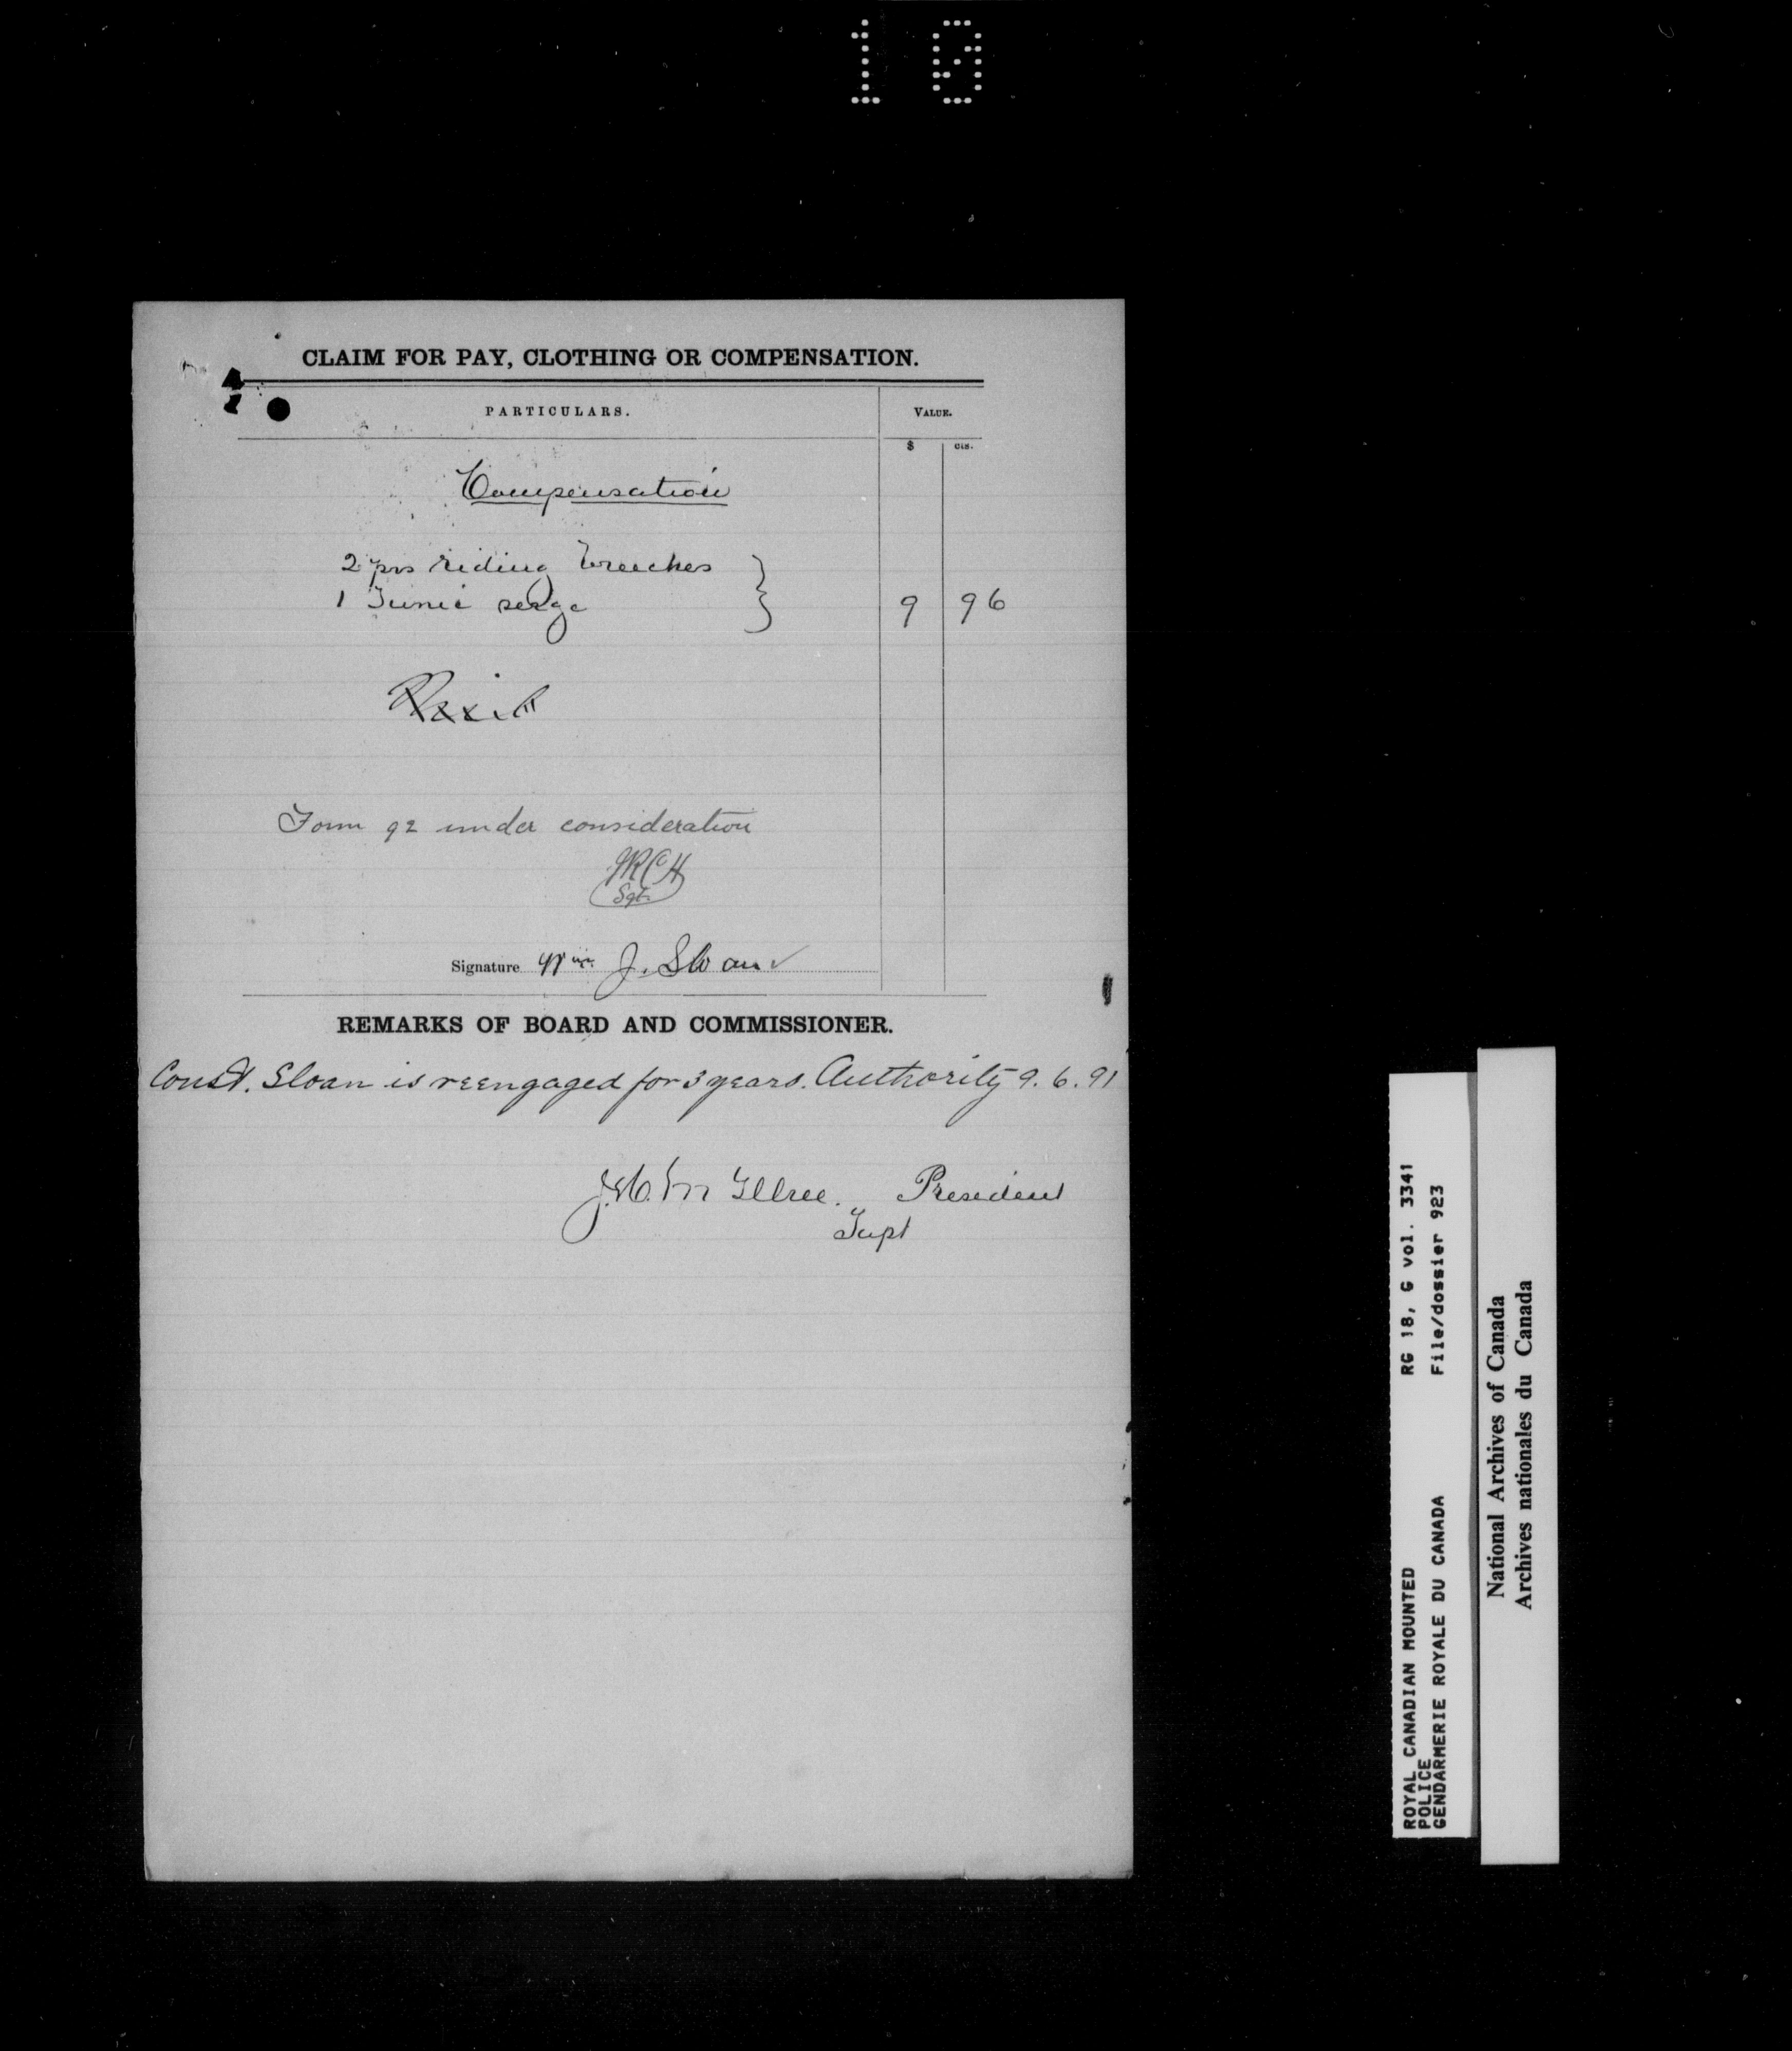 10
CLAIM FOR PAY, CLOTHING OR COMPENSATION.
PARTICULARS.
VALUE.
$ cts.
Compensation
2 prs riding breeches
1 Tunic serge
9 96
Form 92 under consideration
Sgt.
Signature Wm. J. Sloan
REMARKS OF BOARD AND COMMISSIONER.
Const. Sloan is reengaged for 3 years. Authority 9. 6. 91
McIllree. President
Supt
ROYAL CANADIAN MOUNTED RG 18, G vol. 3341
POLICE
GENDARMERIE ROYALE DU CANADA File/dossier 923
National Archives of Canada
Archives nationales du Canada